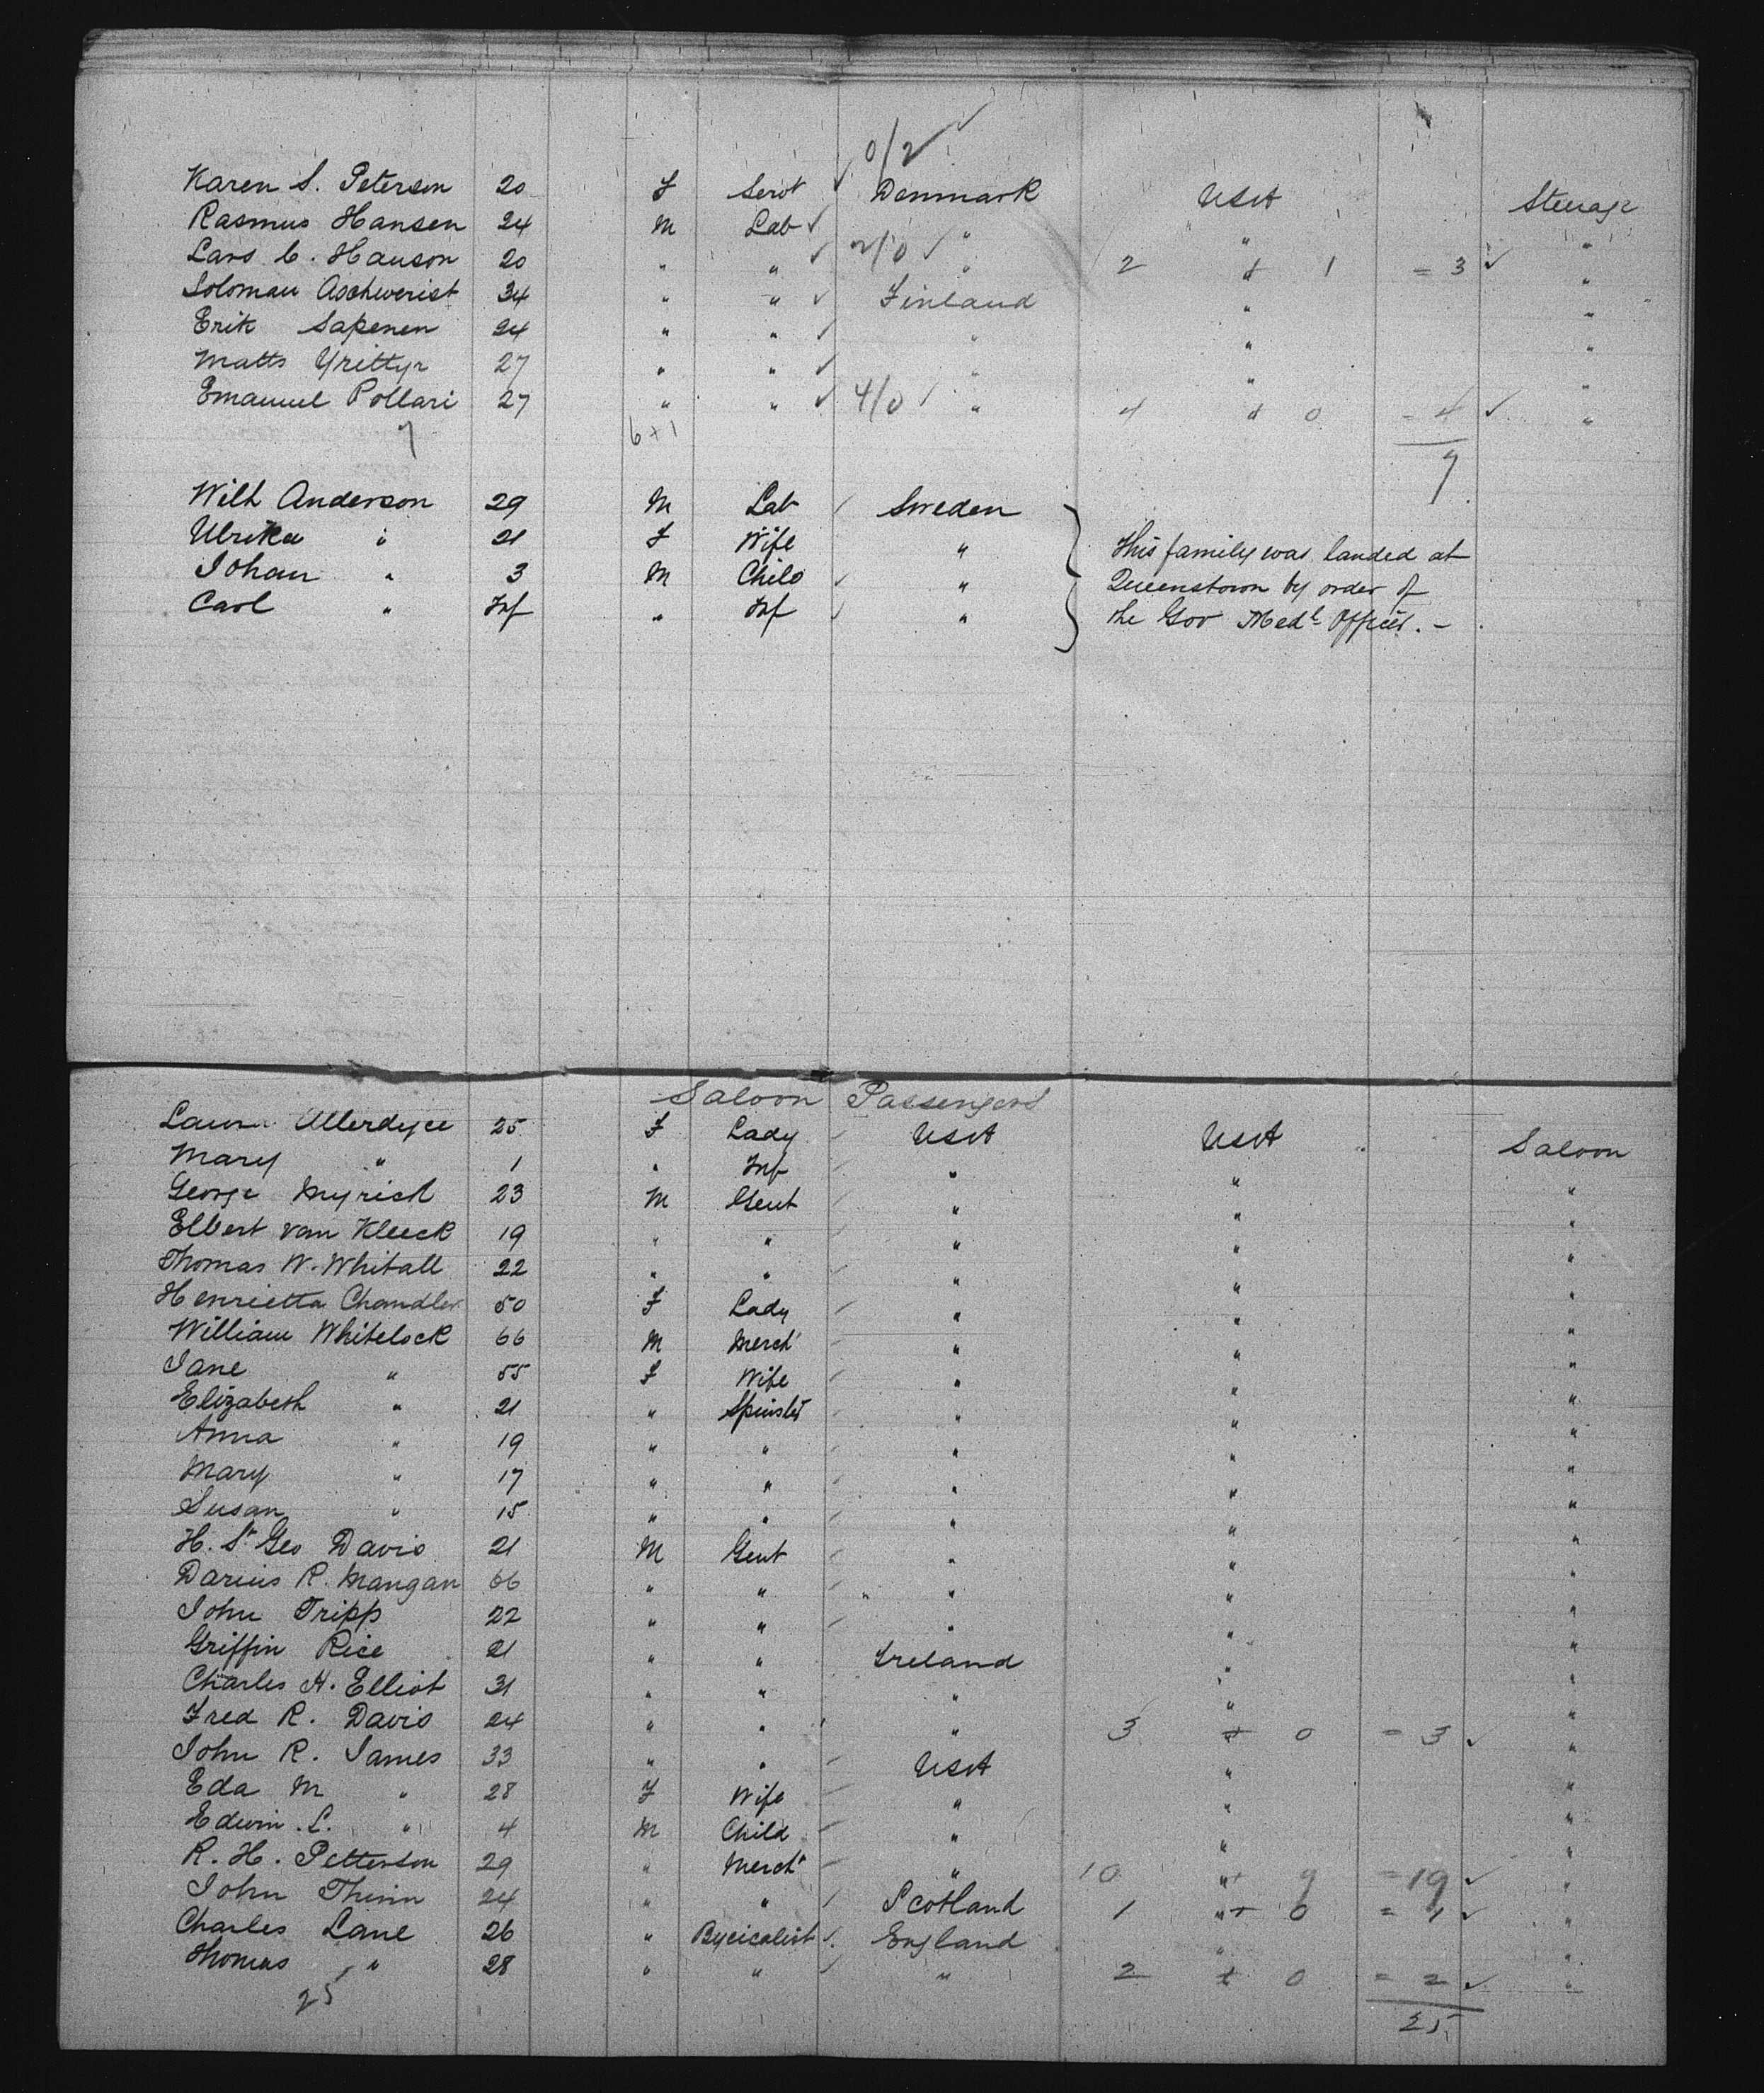 0/2 ✓
Karen S. Peterson 20 F Servt ✓ Denmark USA Steerage
Rasmus Hansen 24 M Lab ✓ " " "
Lars C. Hanson 20 " " ✓ 2/0 ✓ " 2 + 1 = 3 ✓ "
Soloman 34 " " ✓ Finland " "
Erik Sapenen 24 " " ✓ " " "
Matts 27 " " ✓ " " "
Emanuel Pollari 27 " " ✓ 4/0 ✓ " 4 + 0 = 4 ✓ "
7 6+1 7
Wilh Anderson 29 M Lab Sweden
Ulrika " 21 F Wife " This family was landed at
Johan " 3 M Child " Queenstown by order of
Carl " Inf " Inf " the Gov Medl Officer. -
Saloon Passengers
Allerdyce 25 F Lady USA USA Saloon
Mary " 1 " Inf " " "
George Myrick 23 M Gent " " "
Elbert van Kleeck 19 " " " " "
Thomas W. Whitall 22 " " " " "
Henrietta Chandler 50 F Lady " " "
William Whitelock 66 M Merch' " " "
Jane " 55 F Wife " " "
Elizabeth " 21 " Spinstr " " "
Anna " 19 " " " " "
Mary " 17 " " " " "
Susan " 15 " " " " "
H. St Geo Davis 21 M Gent " " "
Darius R. Mangan 66 " " " " "
John Tripp 22 " " " " "
Griffin Rice 21 " " Ireland " "
Charles H. Elliot 31 " " " " "
Fred R. Davis 24 " " " 3 + 0 = 3 ✓ "
John R. James 33 " " USA " "
Eda M " 28 F Wife " " "
Edwin. L. " 4 M Child " " "
R. H. Petterson 29 " Merch't " 10 "+ 9 = 19 ✓ "
John 24 " " Scotland 1 "+ 0 = 1 ✓ "
Charles Lane 26 " Bycicalist England " "
Thomas " 28 " " " 2 + 0 = 2 ✓ "
25 25